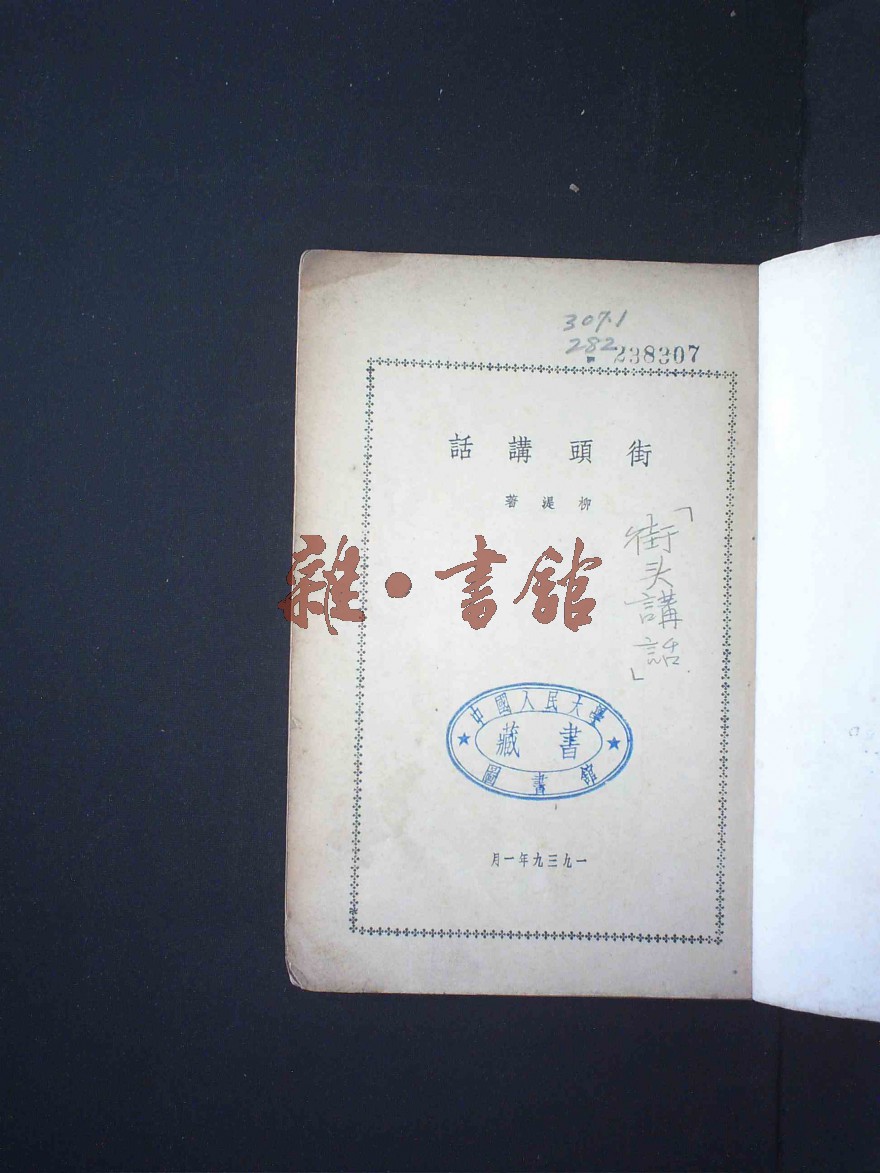 307.1
282
238307
街頭講話
柳湜著
「街头講話」
雜·書館
中國人民大學
藏書
圖書館
一九三九年一月